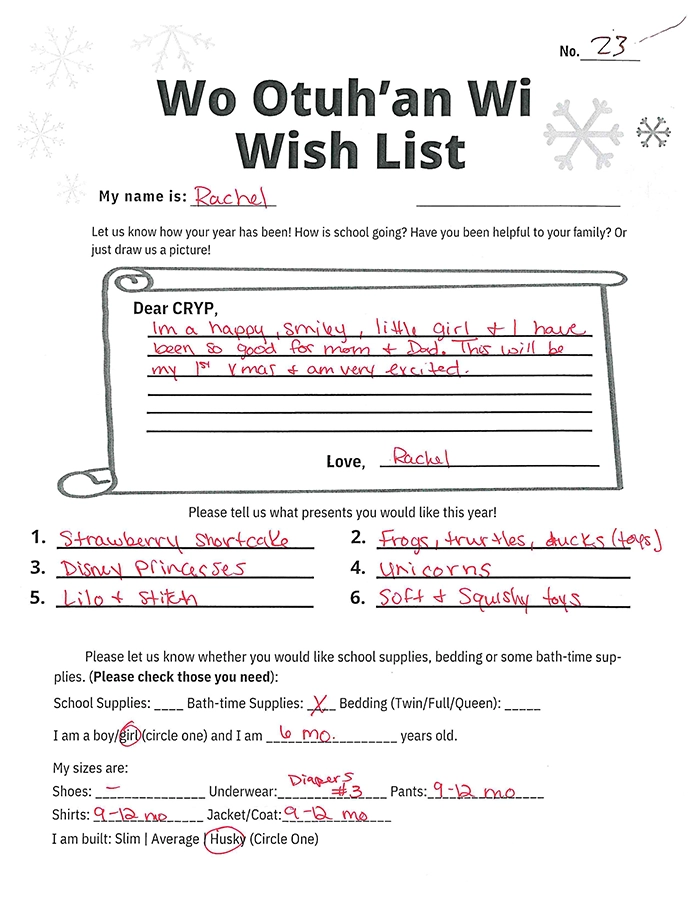 No. 23
Wo Otuh'an Wi
Wish List
My name is: Rachel
Let us know how your year has been! How is school going? Have you been helpful to your family? Or
just draw us a picture!
Dear CRYP,
Im a happy, smiley, little girl & I have
been so good for mom & Dad. This will be
my 1st Xmas & am very excited.
Love, Rachel
Please tell us what presents you would like this year!
1. Strawberry Shortcake 2. Frogs, trurtles, ducks (toys)
3. Disney Princesses 4. Unicorns
5. Lilo & Stitch 6. Soft & Squishy toys
Please let us know whether you would like school supplies, bedding or some bath-time sup-
plies. (Please check those you need):
School Supplies: ____ Bath-time Supplies: _X_ Bedding (Twin/Full/Queen): _____
I am a boy/girl (circle one) and I am 6 mo. years old.
My sizes are:
Shoes: – Underwear: Diapers #3 Pants: 9-12 mo
Shirts: 9-12 mo Jacket/Coat: 9-12 mo
I am built: Slim | Average | Husky (Circle One)